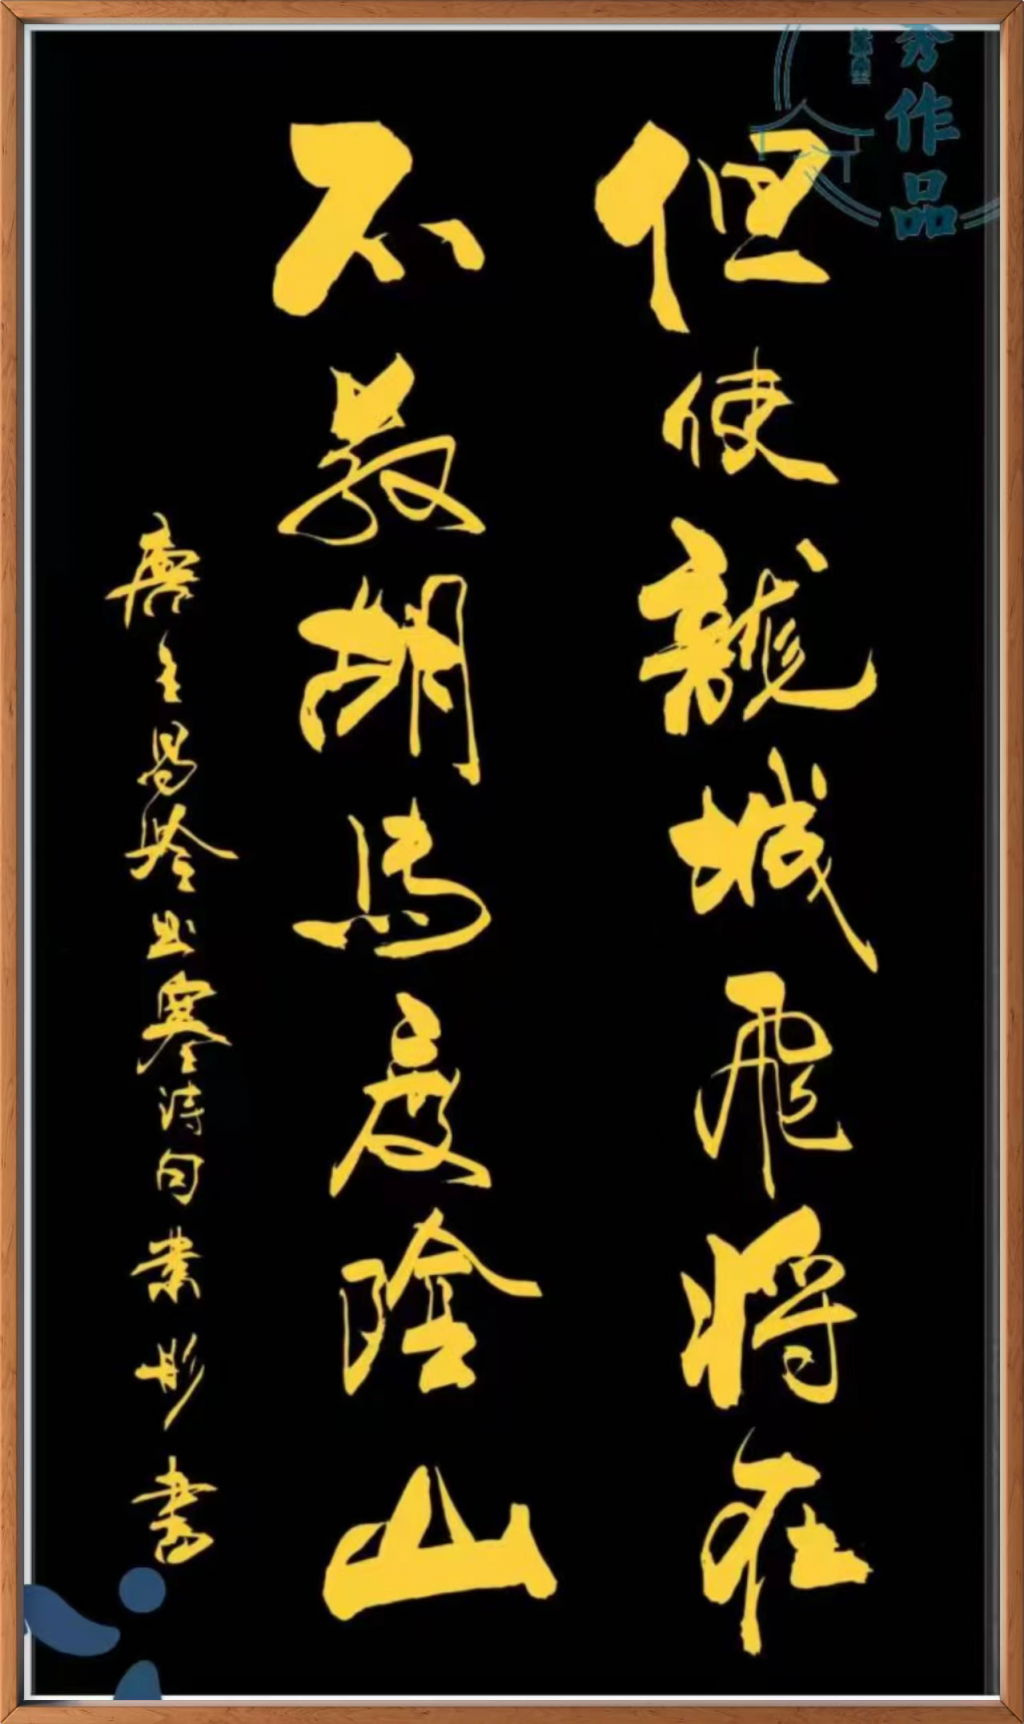 但使龍城飛将在
不教胡馬度陰山
唐王昌齡出塞詩句業彬書
秀作品